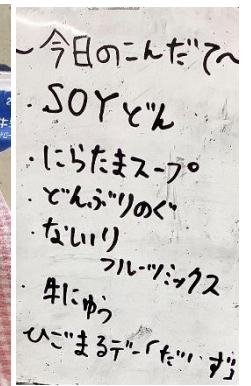 ～今日のこんだて～
・SOYどん
・にらたまスープ
・どんぶりのぐ
・ないいり
フルーツミックス
・牛にゅう
ひごまるデー「だいず」